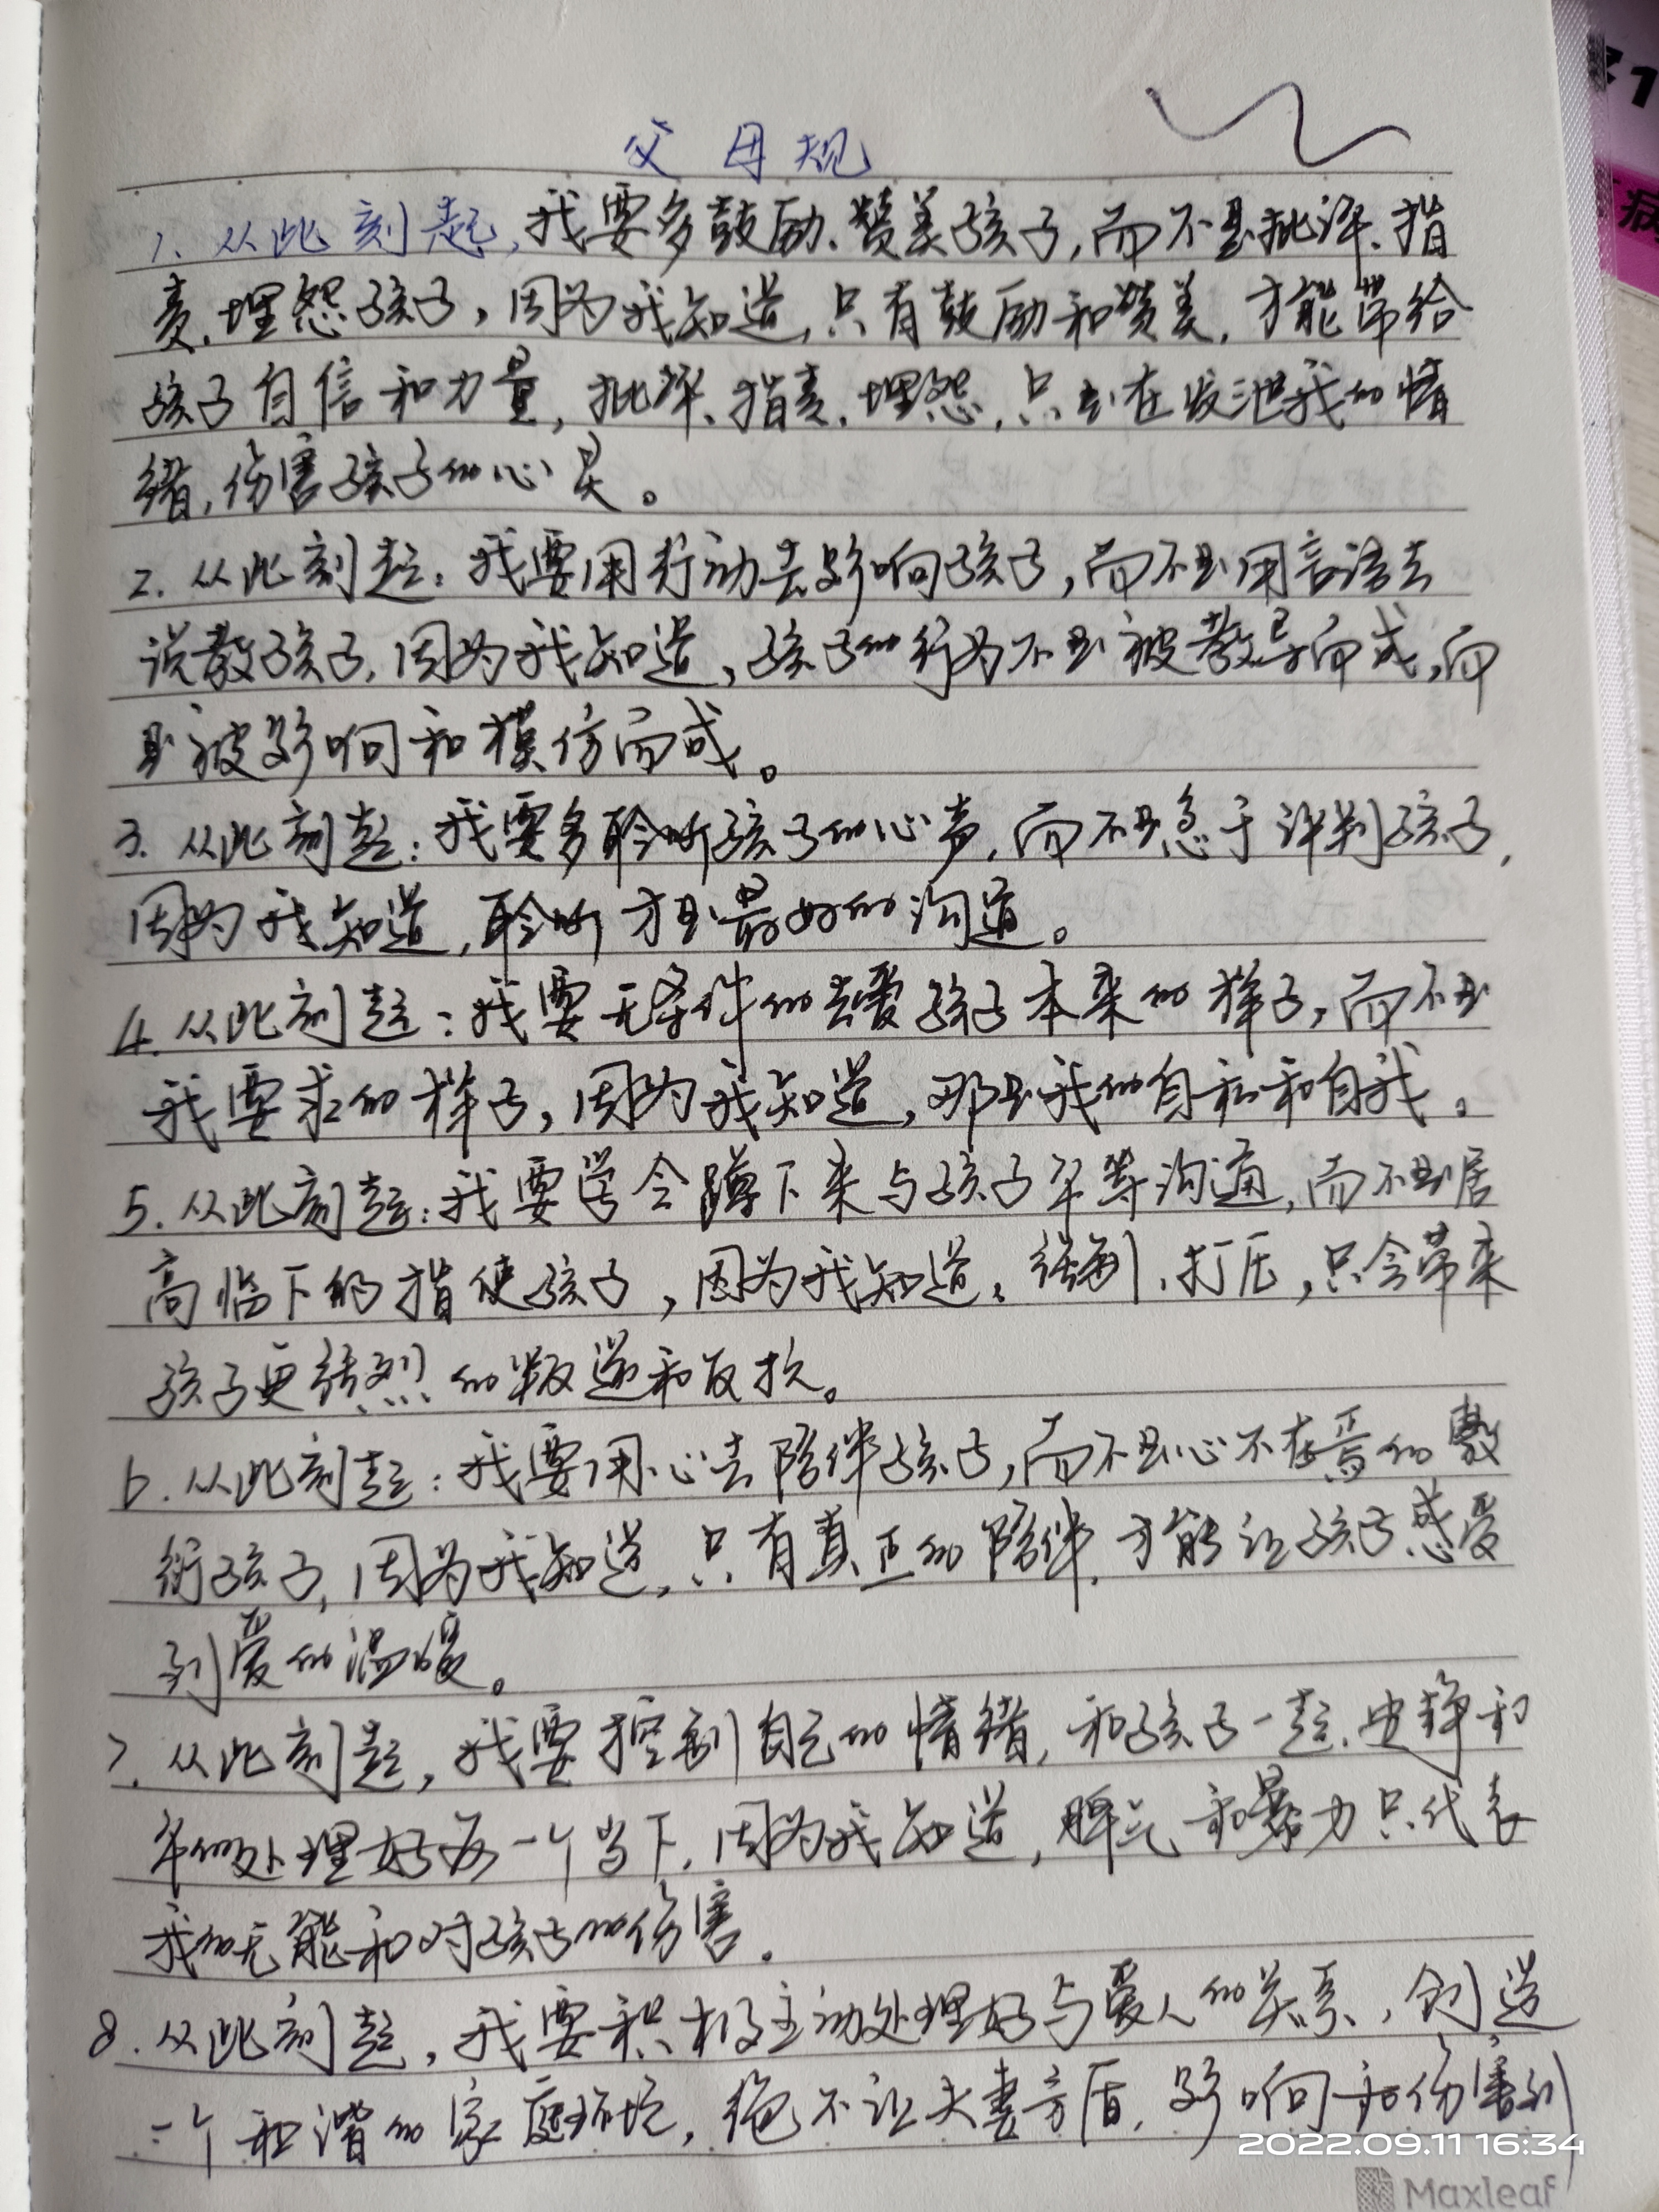 父母规
1. 从此刻起，我要多鼓励、赞美孩子，而不是批评、指
责、埋怨孩子，因为我知道，只有鼓励和赞美，才能带给
孩子自信和力量，批评、指责、埋怨，只是在发泄我的情
绪，伤害孩子的心灵。
2. 从此刻起：我要用行动去影响孩子，而不是用言语去
说教孩子，因为我知道，孩子的行为不是被教导而成，而
是被影响和模仿而成。
3. 从此刻起：我要多聆听孩子的心声，而不是急于评判孩子，
因为我知道，聆听才是最好的沟通。
4. 从此刻起：我要无条件的去爱孩子本来的样子，而不是
我要求的样子，因为我知道，那是我的自私和自我。
5. 从此刻起：我要学会蹲下来与孩子平等沟通，而不是居
高临下的指使孩子，因为我知道，强制、打压，只会带来
孩子更强烈的叛逆和反抗。
6. 从此刻起：我要用心去陪伴孩子，而不是心不在焉的敷
衍孩子，因为我知道，只有真正的陪伴，才能让孩子感受
到爱的温暖。
7. 从此刻起，我要控制自己的情绪，和孩子一起，安静和
平的处理好每一个当下，因为我知道，脾气和暴力只代表
我的无能和对孩子的伤害。
8. 从此刻起，我要积极主动处理好与爱人的关系，创造
一个和谐的家庭环境，绝不让夫妻矛盾，影响和伤害到
2022.09.11 16:34
Maxleaf
病